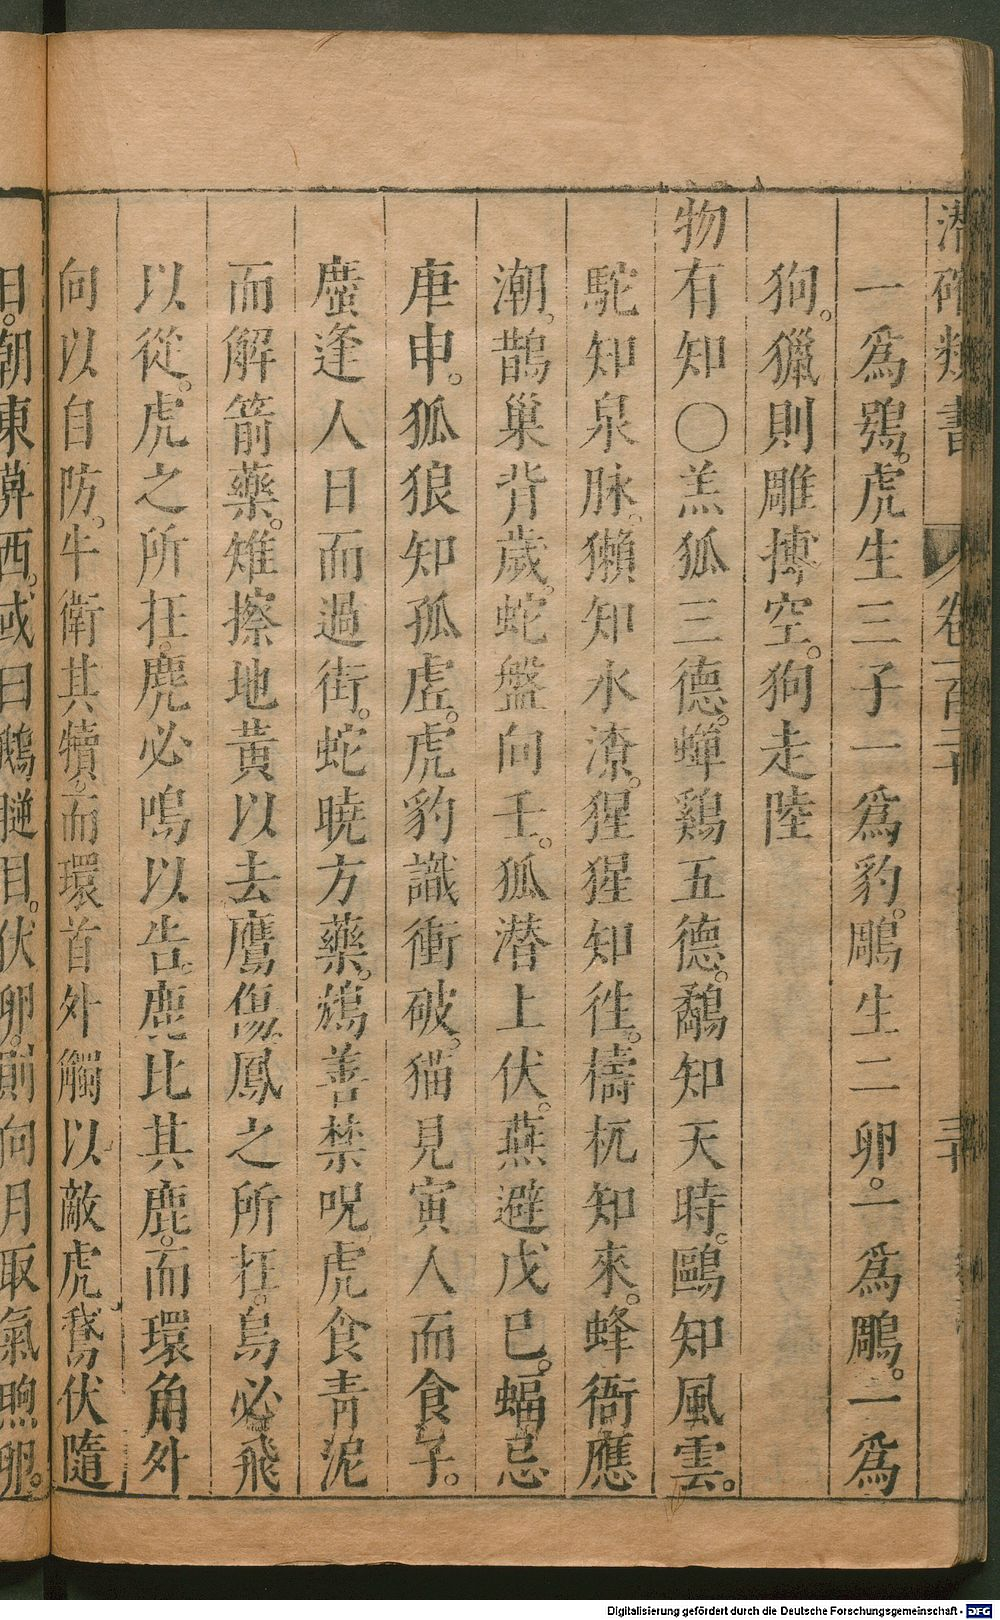 潛確類書 卷一百二十 三十
一爲鴉。虎生三子一爲豹。鵰生二卵。一爲鵰。一爲
狗。獵則雕摶空。狗走陸
物有知〇羔狐三德。蟬鷄五德。鷸知天時。鷗知風雲。
駝知泉脉。獺知水潦。猩猩知徃。檮杌知來。蜂衙應
潮。鵲巢背歲。蛇盤向壬。狐潛上伏。燕避戊巳。蝠忌
庚申。狐狼知孤虛。虎豹識衝破。猫見寅人而食子。
蠯逢人日而過街。蛇曉方藥。鴆善禁呪。虎食青泥
而解箭藥。雉擦地黃以去鷹傷。鳳之所在。鳥必飛
以從。虎之所在。麂必鳴以告。鹿比其鹿。而環角外
向以自防。牛衛其犢。而環首外觸以敵虎。鵞伏隨
日。朝東暮西。或曰鵝膇目。伏卵。則向月取氣煦卵。